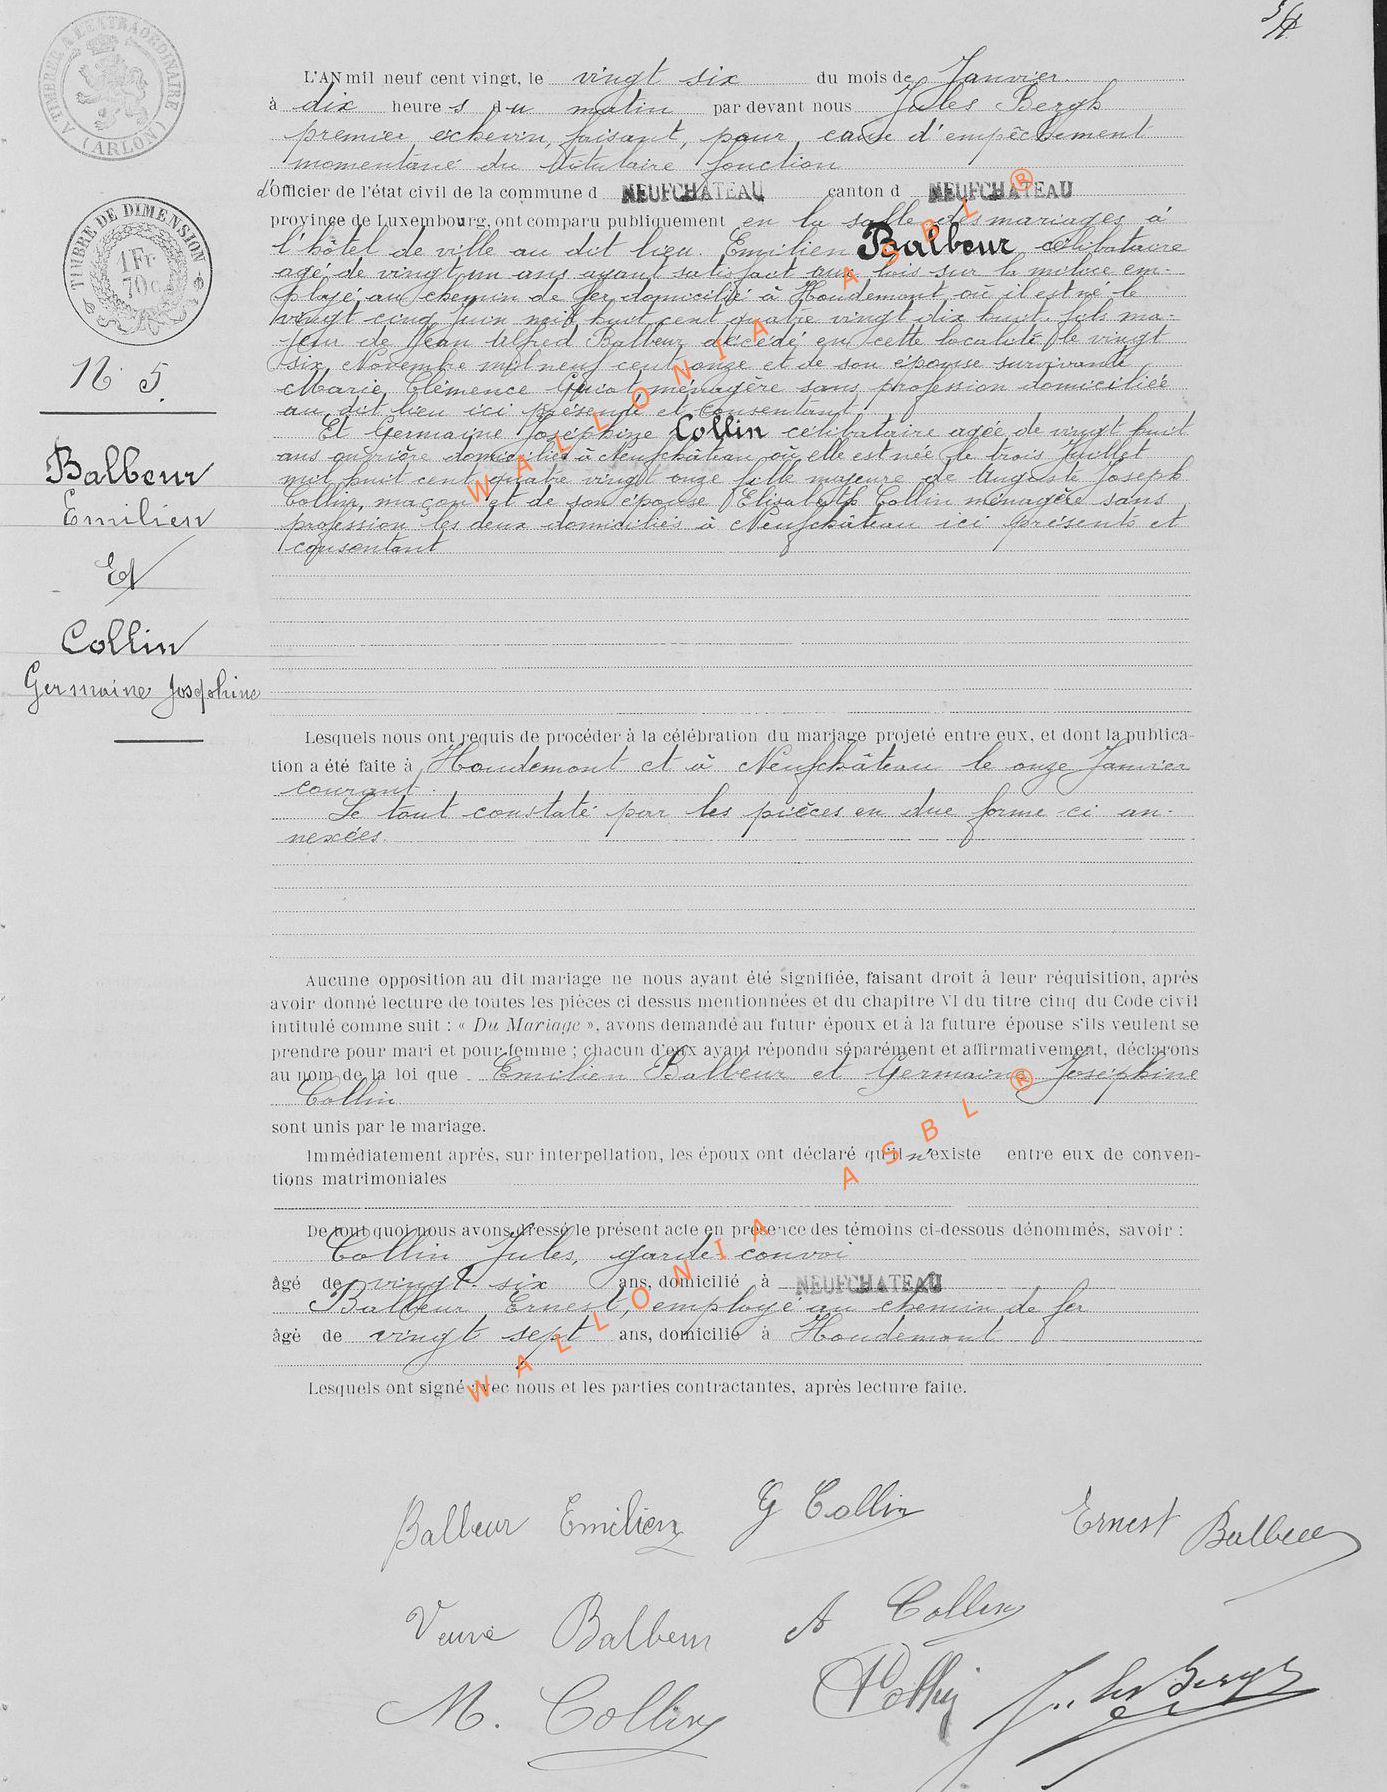 A TIMBRER A L'EXTRAORDINAIRE (ARLON)
TIMBRE DE DIMENSION
1 Fr.
70c
N: 5.
Balbeur
Emilien
Et
Collin
Germaine Josephine
L'AN mil neuf cent vingt, le vingt six du mois de Janvier.
à dix heures du matin par devant nous Jules Bergh
premier échevin, faisant, pour cause d'empêchement
momentané du titulaire fonction
d'Officier de l'état civil de la commune d NEUFCHATEAU canton d NEUFCHATEAU
province de Luxembourg, ont comparu publiquement en la salle des mariages à
l'hôtel de ville au dit lieu Emilien Balbeur, célibataire
agé de vingt un ans ayant satisfait aux lois sur la milice em-
ployé au chemin de fer domicilié à Houdemont où il est né le
vingt cinq Juin mil huit cent quatre vingt dix huit fils ma-
jeur de Jean Alfred Balbeur décédé en cette localité le vingt
six Novembre mil neuf cent onze et de son épouse survivante
Marie Clémence ménagère sans profession domiciliée
au dit lieu ici présente et consentant
Et Germaine Joséphine Collin célibataire agée de vingt huit
ans ouvrière domiciliée à Neufchâteau où elle est née le trois Juillet
mil huit cent quatre vingt onze fille majeure de Auguste Joseph
Collin, maçon et de son épouse Elisabeth Collin ménagère sans
profession les deux domiciliés à Neufchâteau ici présents et
consentant
Lesquels nous ont requis de procéder à la célébration du mariage projeté entre eux, et dont la publica-
tion a été faite à Houdemont et à Neufchâteau le onze Janvier
courant.
Le tout constaté par les pièces en due forme ci an-
nexées.
Aucune opposition au dit mariage ne nous ayant été signifiée, faisant droit à leur réquisition, après
avoir donné lecture de toutes les pièces ci dessus mentionnées et du chapitre VI du titre cinq du Code civil
intitulé comme suit : « Du Mariage », avons demandé au futur époux et à la future épouse s'ils veulent se
prendre pour mari et pour femme ; chacun d'eux ayant répondu séparément et affirmativement, déclarons
au nom de la loi que Emilien Balbeur et Germaine Joséphine
Collin
sont unis par le mariage.
Immédiatement après, sur interpellation, les époux ont déclaré qu'il n'existe entre eux de conven-
tions matrimoniales
De tout quoi nous avons dressé le présent acte en présence des témoins ci-dessous dénommés, savoir :
Collin Jules, garde-convoi
âgé de vingt-six ans, domicilié à NEUFCHATEAU
Balbeur Ernest, employé au chemin de fer
âgé de vingt sept ans, domicilié à Houdemont
Lesquels ont signé avec nous et les parties contractantes, après lecture faite.
Balbeur Emilien G Collin Ernest Balbeur
Veuve Balbeur A Collin
M. Collin Collin Jules Bergh
WALLONIA ASBL ®
WALLONIA ASBL ®